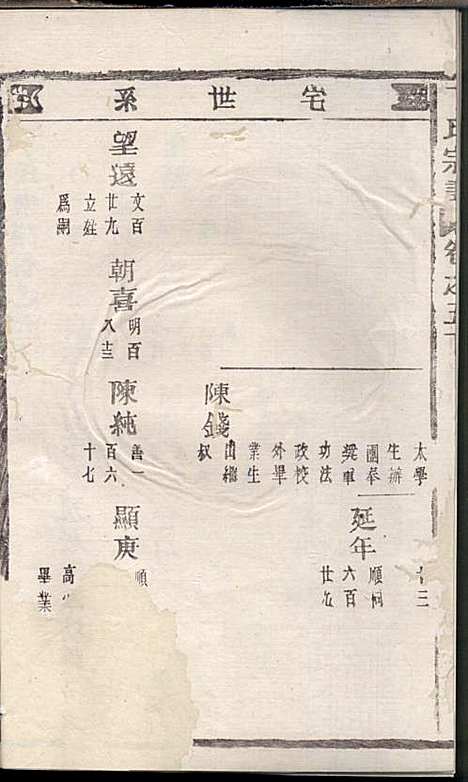 氏宗譜 卷之五
宅世系
太學
生辦
團奉
獎軍
功法
政校
外畢
業生
出繼
叔
十三
延年
順相
六百
廿九
陳錢
望遠
文百
廿九
立姪
爲嗣
朝喜
明百
八十三
陳純
善一
百六
十七
顯庚
順
高
畢業